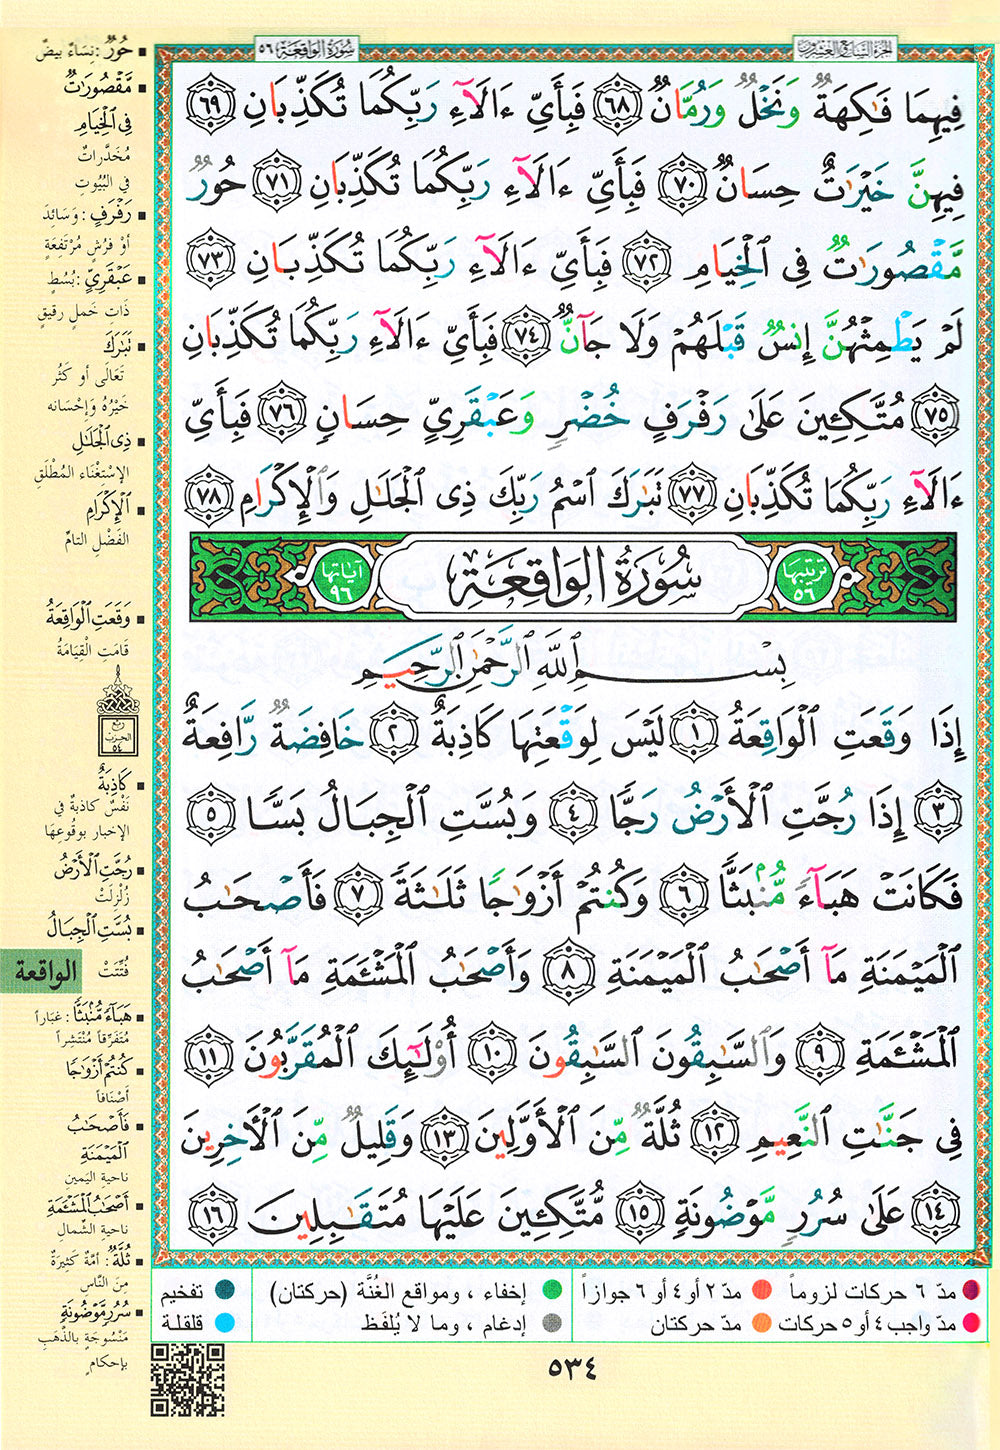 سُورَةُ الوَاقِعَة ٥٦
الجزء السابع والعشرون
فِيهِمَا فَٰكِهَةٌ وَنَخْلٌ وَرُمَّانٌ ٦٨ فَبِأَيِّ ءَالَآءِ رَبِّكُمَا تُكَذِّبَانِ ٦٩
فِيهِنَّ خَيْرَٰتٌ حِسَانٌ ٧٠ فَبِأَيِّ ءَالَآءِ رَبِّكُمَا تُكَذِّبَانِ ٧١ حُورٌ
مَّقْصُورَٰتٌ فِي ٱلْخِيَامِ ٧٢ فَبِأَيِّ ءَالَآءِ رَبِّكُمَا تُكَذِّبَانِ ٧٣
لَمْ يَطْمِثْهُنَّ إِنسٌ قَبْلَهُمْ وَلَا جَآنٌّ ٧٤ فَبِأَيِّ ءَالَآءِ رَبِّكُمَا تُكَذِّبَانِ
٧٥ مُتَّكِـِٔينَ عَلَىٰ رَفْرَفٍ خُضْرٍ وَعَبْقَرِيٍّ حِسَانٍ ٧٦ فَبِأَيِّ
ءَالَآءِ رَبِّكُمَا تُكَذِّبَانِ ٧٧ تَبَٰرَكَ ٱسْمُ رَبِّكَ ذِي ٱلْجَلَٰلِ وَٱلْإِكْرَامِ ٧٨
ترتيبها ٥٦
سُورَةُ الوَاقِعَة
آياتها ٩٦
بِسْمِ ٱللَّهِ ٱلرَّحْمَٰنِ ٱلرَّحِيمِ
إِذَا وَقَعَتِ ٱلْوَاقِعَةُ ١ لَيْسَ لِوَقْعَتِهَا كَاذِبَةٌ ٢ خَافِضَةٌ رَّافِعَةٌ
٣ إِذَا رُجَّتِ ٱلْأَرْضُ رَجًّا ٤ وَبُسَّتِ ٱلْجِبَالُ بَسًّا ٥
فَكَانَتْ هَبَآءً مُّنۢبَثًّا ٦ وَكُنتُمْ أَزْوَٰجًا ثَلَٰثَةً ٧ فَأَصْحَٰبُ
ٱلْمَيْمَنَةِ مَآ أَصْحَٰبُ ٱلْمَيْمَنَةِ ٨ وَأَصْحَٰبُ ٱلْمَشْـَٔمَةِ مَآ أَصْحَٰبُ
ٱلْمَشْـَٔمَةِ ٩ وَٱلسَّٰبِقُونَ ٱلسَّٰبِقُونَ ١٠ أُوْلَٰٓئِكَ ٱلْمُقَرَّبُونَ ١١
فِي جَنَّٰتِ ٱلنَّعِيمِ ١٢ ثُلَّةٌ مِّنَ ٱلْأَوَّلِينَ ١٣ وَقَلِيلٌ مِّنَ ٱلْءَاخِرِينَ
١٤ عَلَىٰ سُرُرٍ مَّوْضُونَةٍ ١٥ مُّتَّكِـِٔينَ عَلَيْهَا مُتَقَٰبِلِينَ ١٦
■ حُورٌ : نِسَاءٌ بِيضٌ
■ مَّقْصُورَٰتٌ
فِي ٱلْخِيَامِ
مُخَدَّرَاتٌ
في البُيُوتِ
■ رَفْرَفٍ : وَسَائِدَ
أوْ فُرُشٍ مُرْتَفِعَةٍ
■ عَبْقَرِيٍّ : بُسُطٍ
ذَات خَملٍ رقيقٍ
■ تَبَٰرَكَ
تَعَالَى أو كَثُر
خَيْرُهُ وَإحْسَانه
■ ذِي ٱلْجَلَٰلِ
الإسْتِغْنَاء المُطْلَقِ
■ ٱلْإِكْرَامِ
الفَضْلِ التامّ
■ وَقَعَتِ ٱلْوَاقِعَةُ
قَامَتِ الْقِيَامَةُ
ربع الحزب ٥٤
■ كَاذِبَةٌ
نَفْسٌ كَاذبةٌ في
الإخبارِ بوقُوعِهَا
■ رُجَّتِ ٱلْأَرْضُ
زُلْزِلَتْ
■ بُسَّتِ ٱلْجِبَالُ
فُتِّتَتْ
الواقعة
■ هَبَآءً مُّنۢبَثًّا : غبَاراً
مُتَفَرِّقاً مُنْتَشِراً
■ كُنتُمْ أَزْوَٰجًا
أصْنَافاً
■ فَأَصْحَٰبُ
ٱلْمَيْمَنَةِ
ناحية اليَمين
■ أَصْحَٰبُ ٱلْمَشْـَٔمَةِ
ناحيةِ الشِّمالِ
■ ثُلَّةٌ : أمَّةٌ كَثِيرَةٌ
مِنَ النَّاسِ
■ سُرُرٍ مَّوْضُونَةٍ
مَنْسُوجَةٍ بالذَّهَبِ
بإحكامٍ
مدّ ٦ حركات لزوماً
مدّ ٢ أو ٤ أو ٦ جوازاً
إخفاء ، ومواقع الغُنَّة (حركتان)
تفخيم
مدّ واجب ٤ أو ٥ حركات
مدّ حركتان
إدغام ، وما لا يُلفَظ
قلقلة
٥٣٤